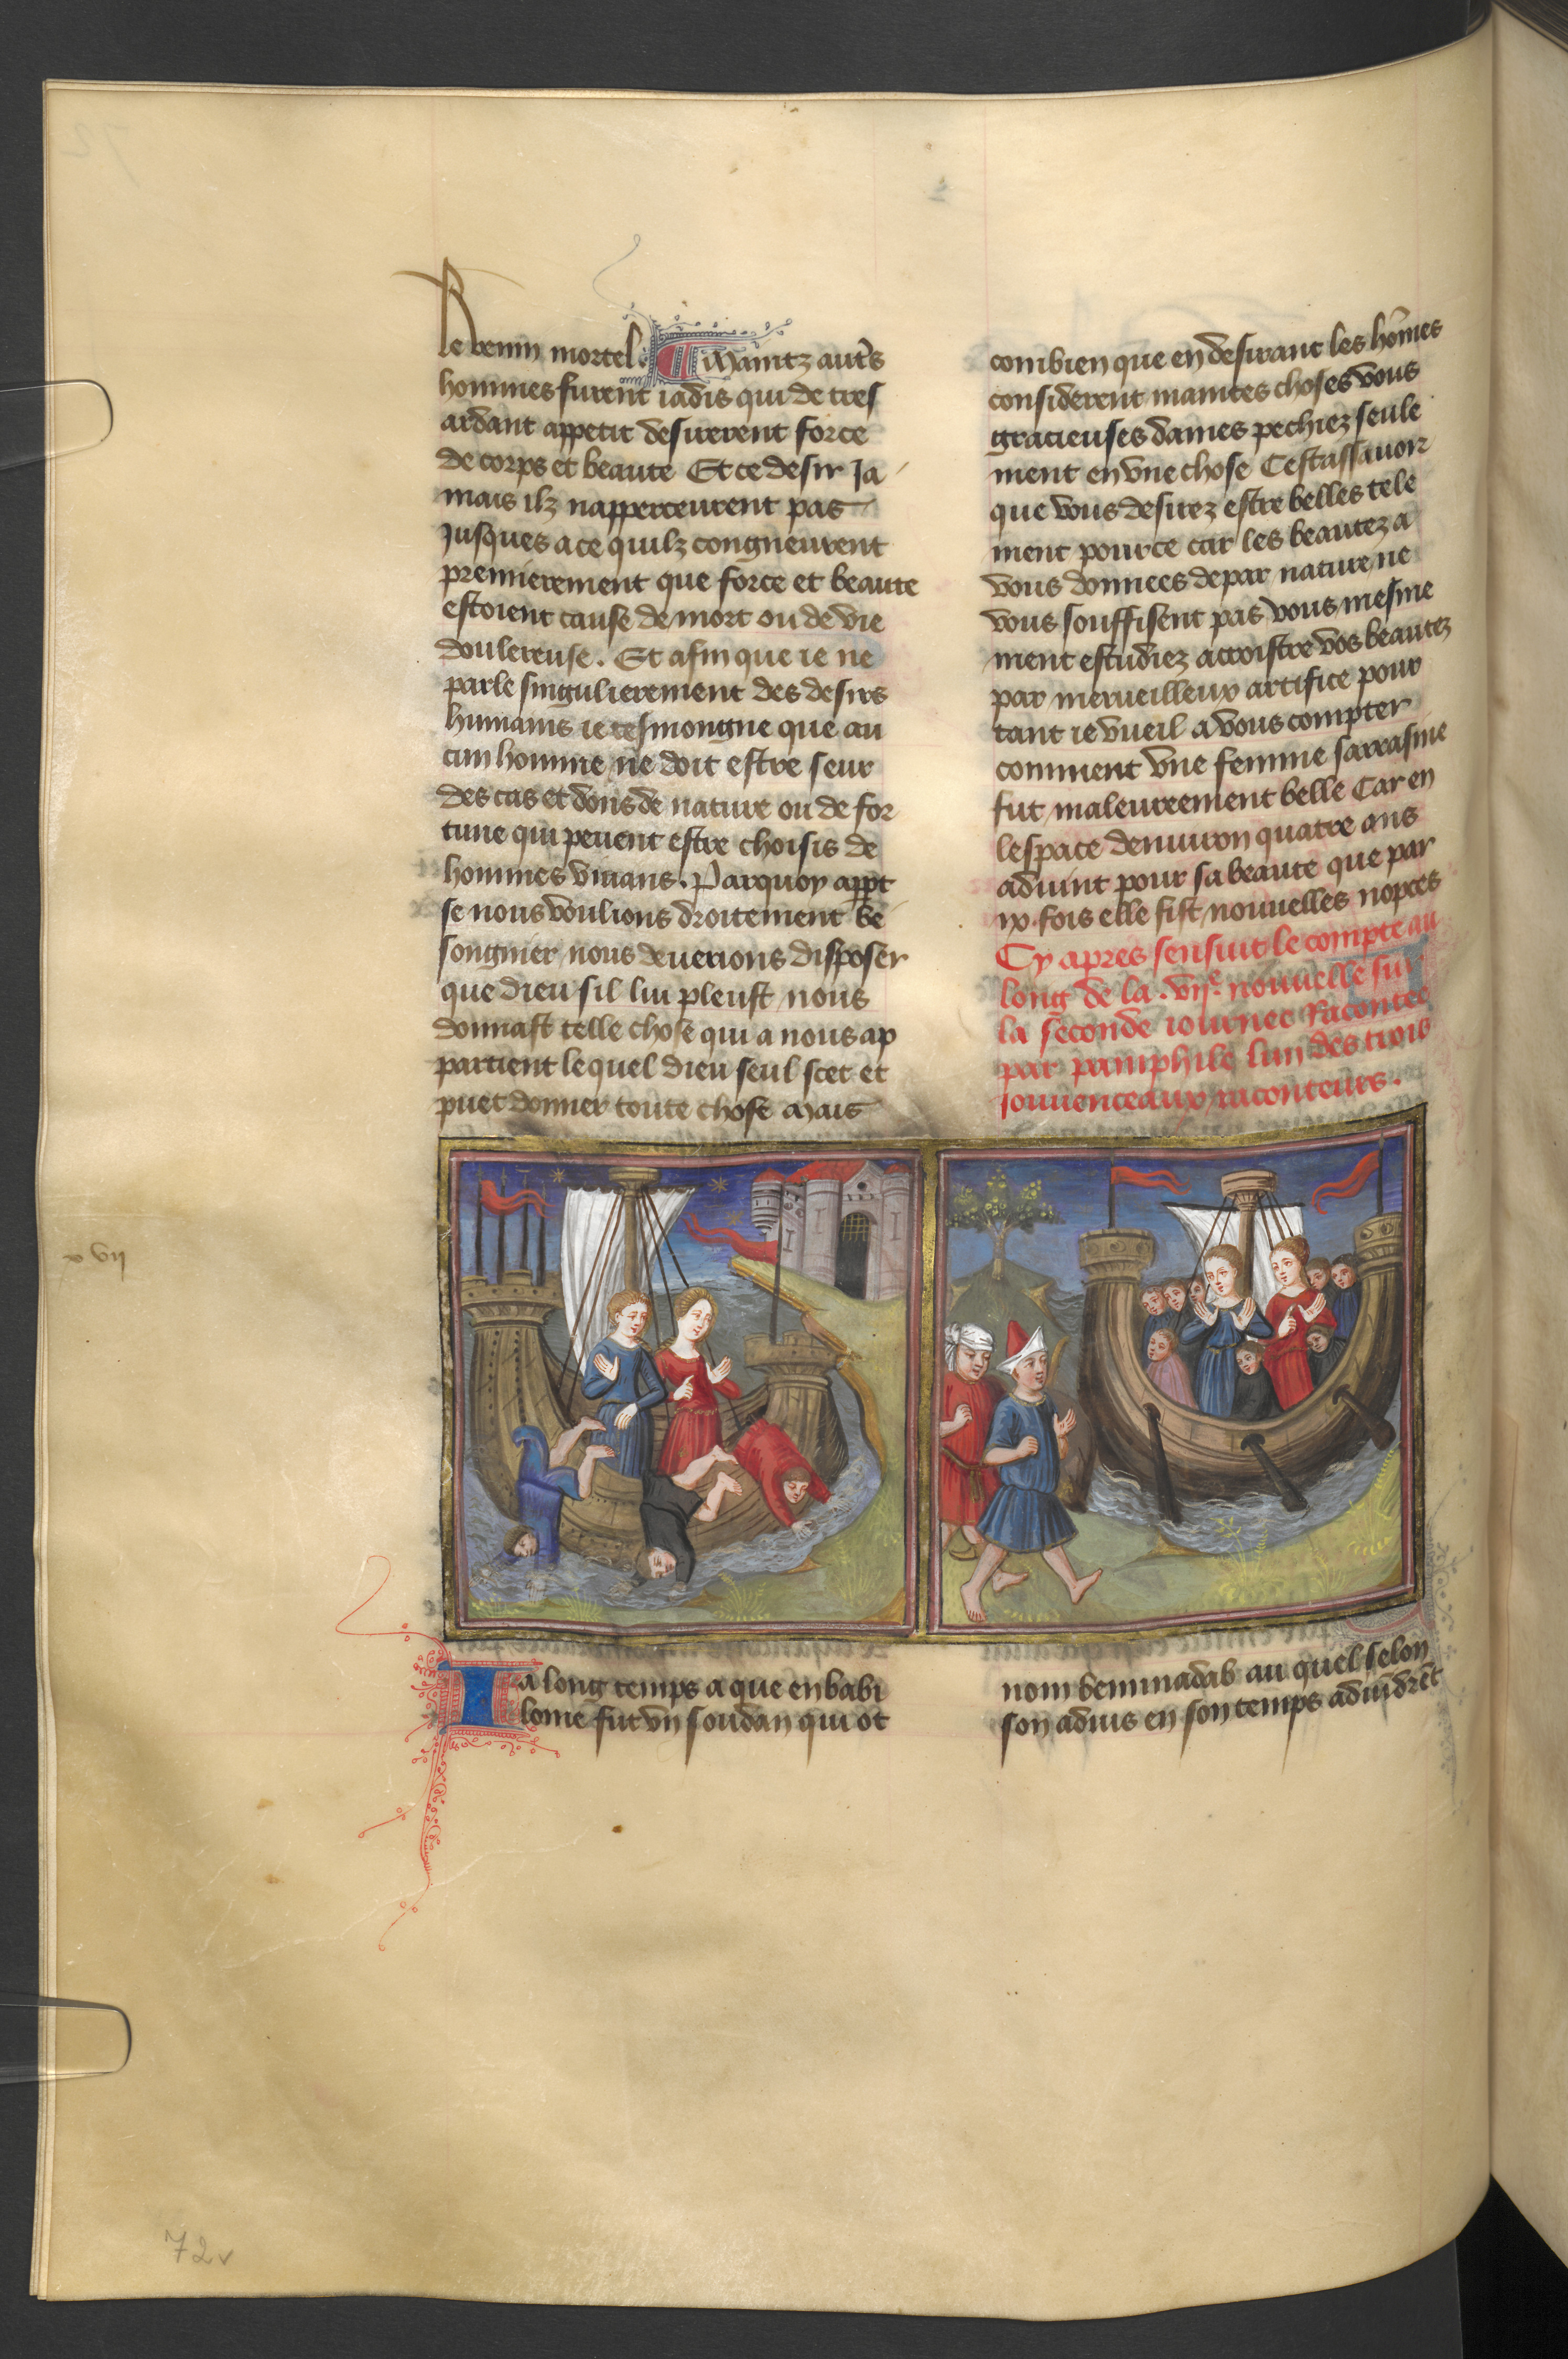 le venin mortel. Maintz aut's
hommes furent iadis qui de tres
ardant appetit desirerent force
de corps et beaute Et ce desir Ja
mais ilz napperceurent pas
Jusques a ce quilz congneurent
premierement que force et beaute
estoient cause de mort ou de vie
doulereuse. Et afin que ie ne
parle singulierement des desirs
humains ie tesmongne que au
cun homme ne doit estre seur
des cas et dons de nature ou de for
tune qui peuent estre choisis de
hommes viuans. Parquoy appt
se nous voulions droitement be
songnier nous deuerions disposer
que dieu sil lui pleust nous
donnast telle chose qui a nous ap
partient lequel dieu seul scet et
puet donner toute chose Mais
combien que en desirant les hōmes
considerent maintes choses vous
gracieuses dames pechiez seule
ment en vne chose Cestassauoir
que vous desirez estre belles tele
ment pource car les beautez a
vous donnees de par nature ne
vous souffisent pas vous mesme
ment estudiez accroistre vos beautez
par merueilleux artifice pour
tant ie vueil a vous compter
comment vne femme sarrasine
fut maleureement belle Car en
lespace denuiron quatre ans
aduint pour sa beaute que par
ix. fois elle fist nouuelles nopces
Cy apres sensuit le compte au
long de la .vije. nouuelle sur
la seconde iournee Racontee
par pamphile lun des trois
Jouuenceaux raconteurs.
xvij
Ia long temps a que en babi
lonie fut vn soudan qui ot
nom beminadab au quel selon
son aduis en son temps aduidrēt
72v